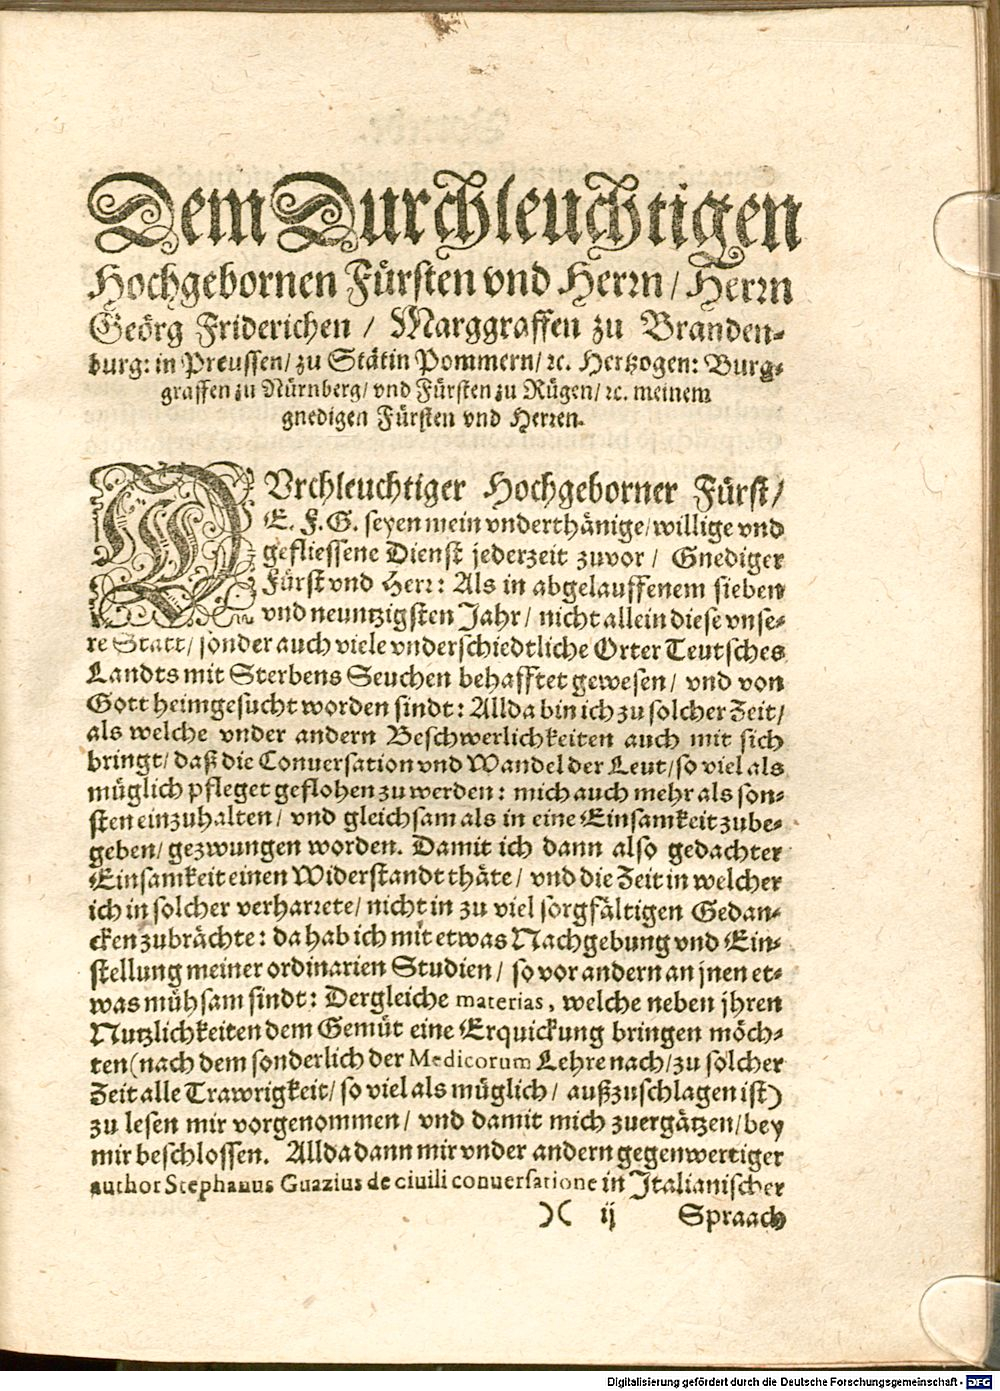 Dem Durchleuchtigen
Hochgebornen Fürsten vnd Herrn/ Herrn
Geörg Friderichen / Marggraffen zu Branden-
burg: in Preussen/ zu Stätin Pommern/ ꝛc. Hertzogen: Burg-
graffen zu Nürnberg/ vnd Fürsten zu Rügen/ ꝛc. meinem
gnedigen Fürsten vnd Herren.
DVrchleuchtiger Hochgeborner Fürst/
E. F. G. seyen mein vnderthänige/ willige vnd
gefliessene Dienst jederzeit zuvor / Gnediger
Fürst vnd Herr: Als in abgelauffenem sieben
vnd neuntzigsten Jahr/ nicht allein diese vnse-
re Statt/ sonder auch viele vnderschiedtliche Orter Teutsches
Landts mit Sterbens Seuchen behafftet gewesen/ vnd von
Gott heimgesucht worden sindt: Allda bin ich zu solcher Zeit/
als welche vnder andern Beschwerlichkeiten auch mit sich
bringt/ daß die Conuersation vnd Wandel der Leut/ so viel als
müglich pfleget geflohen zu werden: mich auch mehr als son-
sten einzuhalten/ vnd gleichsam als in eine Einsamkeit zube-
geben/ gezwungen worden. Damit ich dann also gedachter
Einsamkeit einen Widerstandt thäte/ vnd die Zeit in welcher
ich in solcher verharrete/ nicht in zu viel sorgfältigen Gedan-
cken zubrächte: da hab ich mit etwas Nachgebung vnd Ein-
stellung meiner ordinarien Studien/ so vor andern an jnen et-
was mühsam sindt: Dergleiche materias, welche neben jhren
Nutzlichkeiten dem Gemüt eine Erquickung bringen möch-
ten (nach dem sonderlich der Medicorum Lehre nach/ zu solcher
Zeit alle Trawrigkeit/ so viel als müglich/ außzuschlagen ist)
zu lesen mir vorgenommen/ vnd damit mich zuergätzen/ bey
mir beschlossen. Allda dann mir vnder andern gegenwertiger
author Stephanus Guazius de ciuili conuersatione in Italianischer
)( ij Spraach
Digitalisierung gefördert durch die Deutsche Forschungsgemeinschaft - DFG